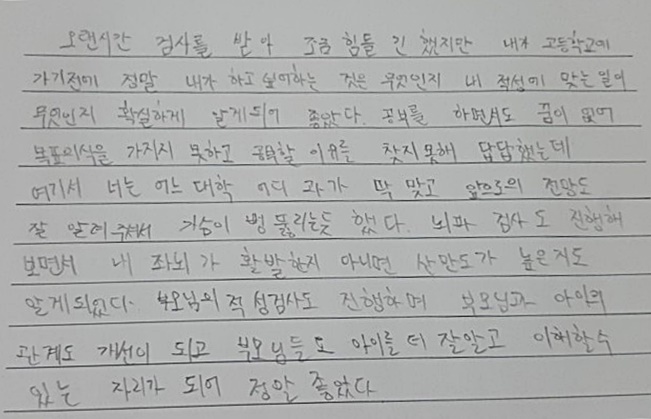 오랜시간 검사를 받아 조금 힘들 긴 했지만 내가 고등학교에
가기전에 정말 내가 하고싶어하는 것은 무엇인지 내 적성에 맞는일이
무엇인지 확실하게 알게되어 좋았다. 공부를 하면서도 꿈이 없어
목표의식을 가지지 못하고 공부할 이유를 찾지못해 답답했는데
여기서 너는 어느 대학 어디 과가 딱 맞고 앞으로의 전망도
잘 알려주셔서 가슴이 뻥 뚫리는듯 했다. 뇌파 검사도 진행해
보면서 내 좌뇌가 활발한지 아니면 산만도가 높은지도
알게되었다. 부모님의 적성검사도 진행하며 부모님과 아이의
관계도 개선이 되고 부모님들도 아이를 더 잘알고 이해할수
있는 자리가 되어 정말 좋았다